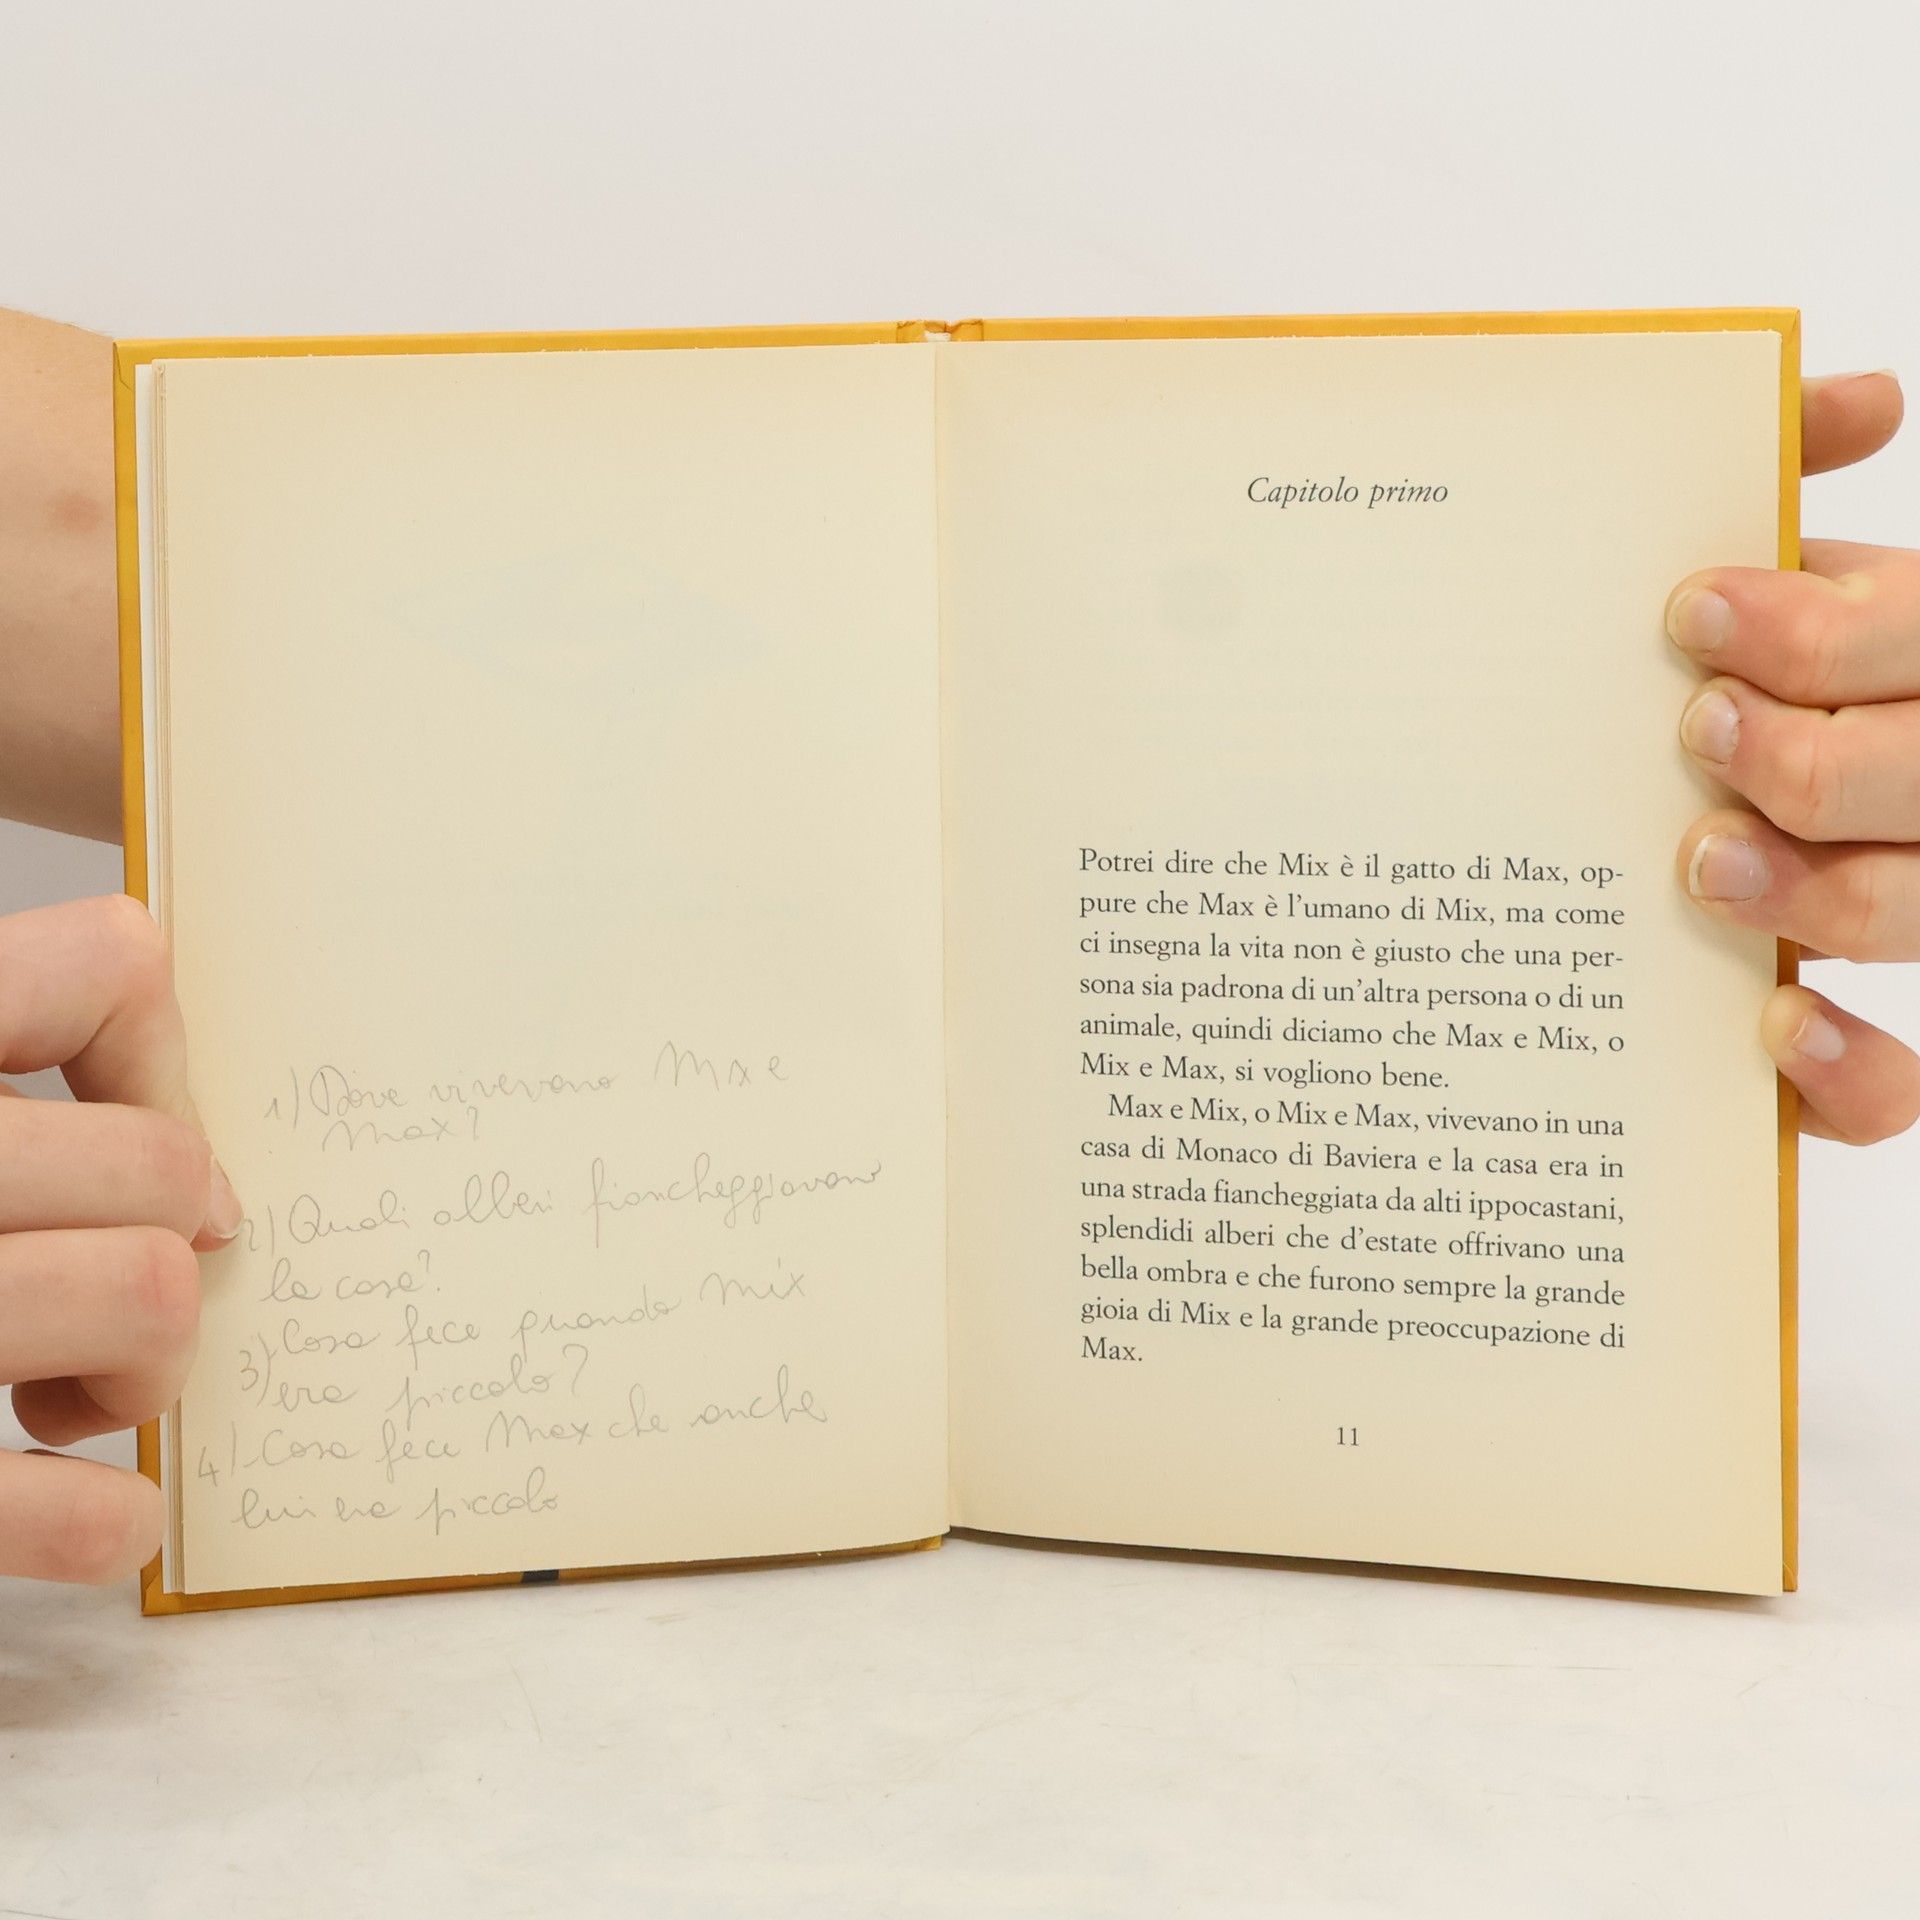 1) Dove vivevano Mix e
Max?
2) Quali alberi fiancheggiavano
la casa?
3) Cosa fece quando Mix
era piccolo?
4) Cosa fece Max che anche
lui era piccolo
Capitolo primo
Potrei dire che Mix è il gatto di Max, op-
pure che Max è l'umano di Mix, ma come
ci insegna la vita non è giusto che una per-
sona sia padrona di un'altra persona o di un
animale, quindi diciamo che Max e Mix, o
Mix e Max, si vogliono bene.
Max e Mix, o Mix e Max, vivevano in una
casa di Monaco di Baviera e la casa era in
una strada fiancheggiata da alti ippocastani,
splendidi alberi che d'estate offrivano una
bella ombra e che furono sempre la grande
gioia di Mix e la grande preoccupazione di
Max.
11